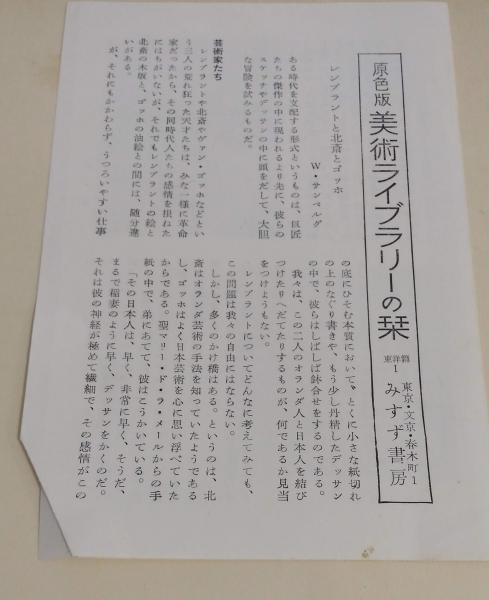 原色版 美術ライブラリーの栞
東洋篇 1
東京・文京・春木町 1
みすず書房
レンブラントと北斎とゴッホ
W・サンベルグ
ある時代を支配する形式というものは、巨匠
たちの傑作の中に現われるより先に、彼らの
スケッチやデッサンの中に頭をだして、大胆
な冒険を試みるものだ。
芸術家たち
レンブラントや北斎やヴァン・ゴッホなどとい
う三人の荒れ狂った天才たちは、みな一様に革命
家だったから、その同時代人たちの感情を損ねた
にはちがいないが、それでもレンブラントの絵と
北斎の木版と、ゴッホの油絵との間には、随分違
いがある。
が、それにもかかわらず、うつろいやすい仕事
の底にひそむ本質において、とくに小さな紙切れ
の上のなぐり書きや、もう少し丹精したデッサン
の中で、彼らはしばしば鉢合せをするのである。
我々は、この二人のオランダ人と日本人を結び
つけたりへだてたりするものが、何であるか見当
をつけようもない。
レンブラントについてどんなに考えてみても、
この問題は我々の自由にはならない。
しかし、多くのかけ橋はある。というのは、北
斎はオランダ芸術の手法を知っていたようである
し、ゴッホはよく日本芸術を心に思い浮べていた
からである。聖マリー・ド・ラ・メールからの手
紙の中で、弟にあてて、彼はこうかいている。
「その日本人は、早く、非常に早く、そうだ、
まるで稲妻のように早く、デッサンをかくのだ。
それは彼の神経が極めて繊細で、その感情がこの